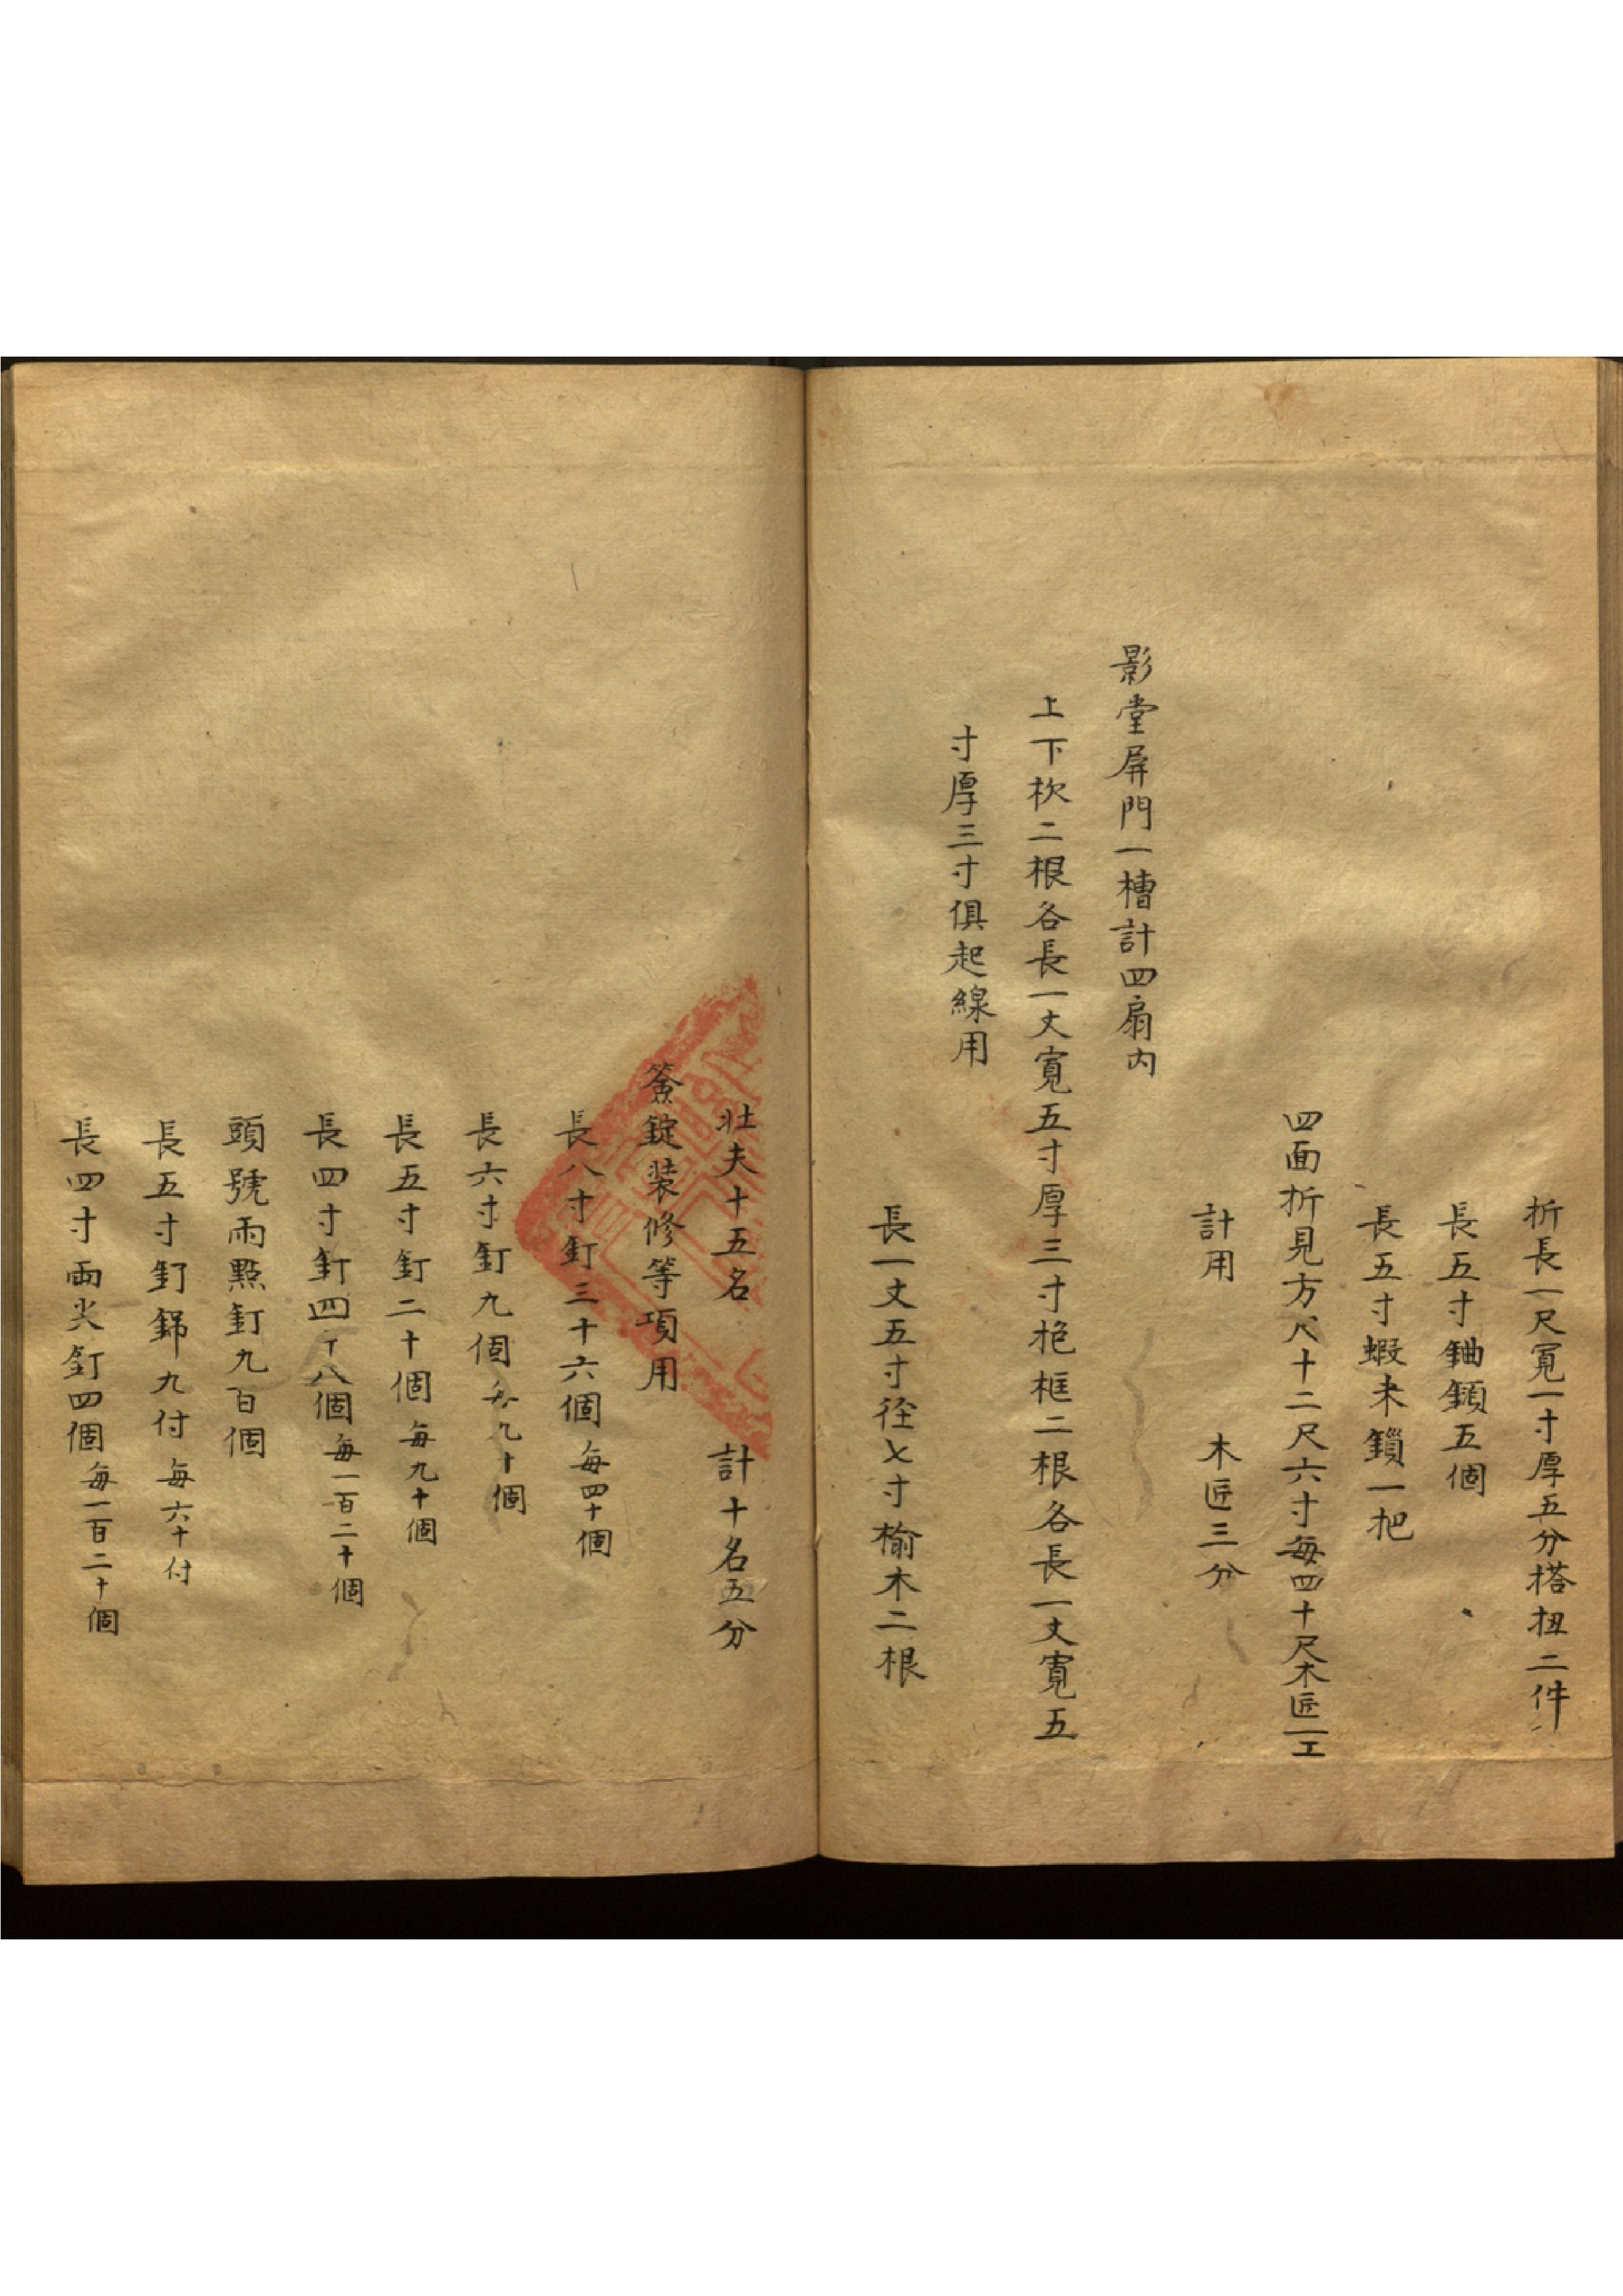 折長一尺寬一寸厚五分搭扭二件
長五寸鈾鎖五個
長五寸蝦米鎖一把
四面折見方尺十二尺六寸每四十尺木匠一工
計用 木匠三分
影堂屏門一槽計四扇內
上下枕二根各長一丈寬五寸厚三寸抱框二根各長一丈寬五
寸厚三寸俱起線用
長一丈五寸徑七寸榆木二根
壯夫十五名 計十名五分
簽錠裝修等項用
長八寸釘三十六個每四十個
長六寸釘九個每九十個
長五寸釘二十個每九十個
長四寸釘四十八個每一百二十個
頭號雨點釘九百個
長五寸釘錦九付每六十付
長四寸兩尖釘四個每一百二十個